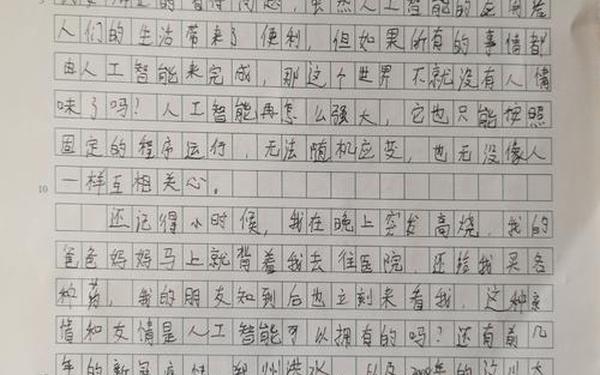 人工智能的
人们的生活带来了便利，但如果所有的事情都
由人工智能来完成，那这个世界不就没有人情
味了吗！人工智能再怎么强大，它也只能按照
固定的程序运行，无法随机应变，也无没像人
10 一样互相关心。
还记得小时候，我在晚上突发高烧，我的
爸爸妈妈马上就背着我去往医院，还给我买各
种药，我的朋友知到后也立刻来看我，这种亲
情和友情是人工智能可以拥有的吗？还有前几
年的新冠疫情，郑州洪水，以及2008年的汶川大